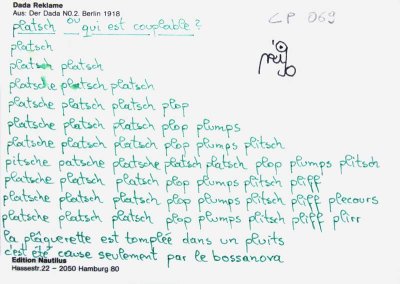 Dada Reklame
Aus: Der Dada N0.2. Berlin 1918
CP 069
platsch ou qui est coupable?
platsch
platsch platsch
platsch platsch platsch
platsche platsch platsch plop
platsche platsch platsch plop plumps
platsche platsch platsch plop plumps plitsch
pitsche platsche platsche platsch platsch plop plumps plitsch
platsche platsch platsch plop plumps plitsch pliff
platsche platsch platsch plop plumps plitsch pliff plecours
platsche platsch platsch plop plumps plitsch pliff plirr
la plâquerette est tomplée dans un pluits
c'est été cause seulement par le bossanova
Edition Nautilus
Hassestr.22 – 2050 Hamburg 80